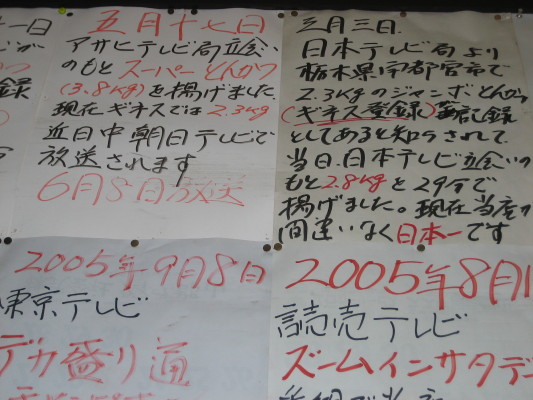 三月三日.
日本テレビ局より
栃木県宇都宮市で
2.3kgのジャンボとんかつ
(ギネス登録)
としてあると知らされて、
当日.日本テレビ立会いの
もと2.8kgと29分で
揚げました。現在当店が
間違いなく日本一です
五月十七日
アサヒテレビ局立会い
のもとスーパーとんかつ
(3.8kg)を揚げました
現在ギネスでは2.3kg
近日中朝日テレビで
放送されます
6月8日放送
2005年8月1
読売テレビ
ズームインサタデ
2005年9月8日
東京テレビ
デカ盛り通